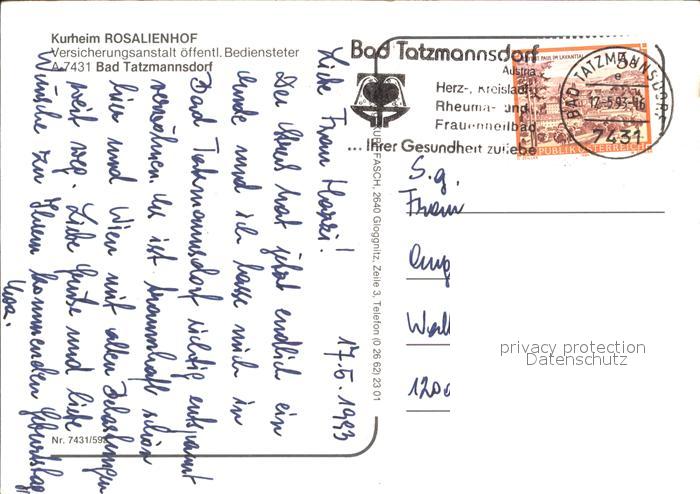 Kurheim ROSALIENHOF
Versicherungsanstalt öffentl. Bediensteter
A-7431 Bad Tatzmannsdorf
17.5.1993
Liebe Frau
Der Kurs hat jetzt endlich ein
Ende und ich lasse mich in
Bad Tatzmannsdorf richtig entspannt
verwöhnen. Es ist traumhaft schön
hier und Wien mit allen Belastungen
weit weg. Liebe Grüße und liebe
Wünsche zu Ihrem kommenden Geburtstag
Nr. 7431/59
FASCH, 2640 Gloggnitz, Zeile 3, Telefon (0 26 62) 23 01
Bad Tatzmannsdorf
Austria
Herz-, Kreislauf-
Rheuma- und
Frauenheilbad
... Ihrer Gesundheit zuliebe
ST. PAUL IM LAVANTTAL
REPUBLIK ÖSTERREICH
BAD TATZMANNSDORF
17.-5.93-16
7431
S.g.
Frau
privacy protection
Datenschutz